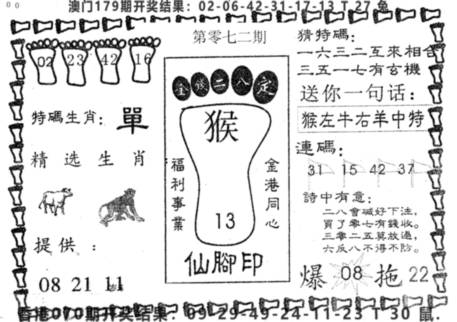 澳门179期开奖结果：02-06-42-31-17-13 T 27 兔
02 23 42 16
第零七二期
金钱二八定
猴
福利事業
金港同心
13
仙腳印
特碼生肖：單
精选生肖
提供：
08 21 11
猜特碼：
一六三二互來相合
三五一七有玄機
送你一句话：
猴左牛右羊中特
連碼：
31 15 42 37
詩中有意：
二八會碱好下注，
買了零七有錢收。
三零二五莫放過，
六反八不得不防。
爆 08 拖 22
香港070期开奖结果：09-29-49-24-11-23 T 30 鼠.